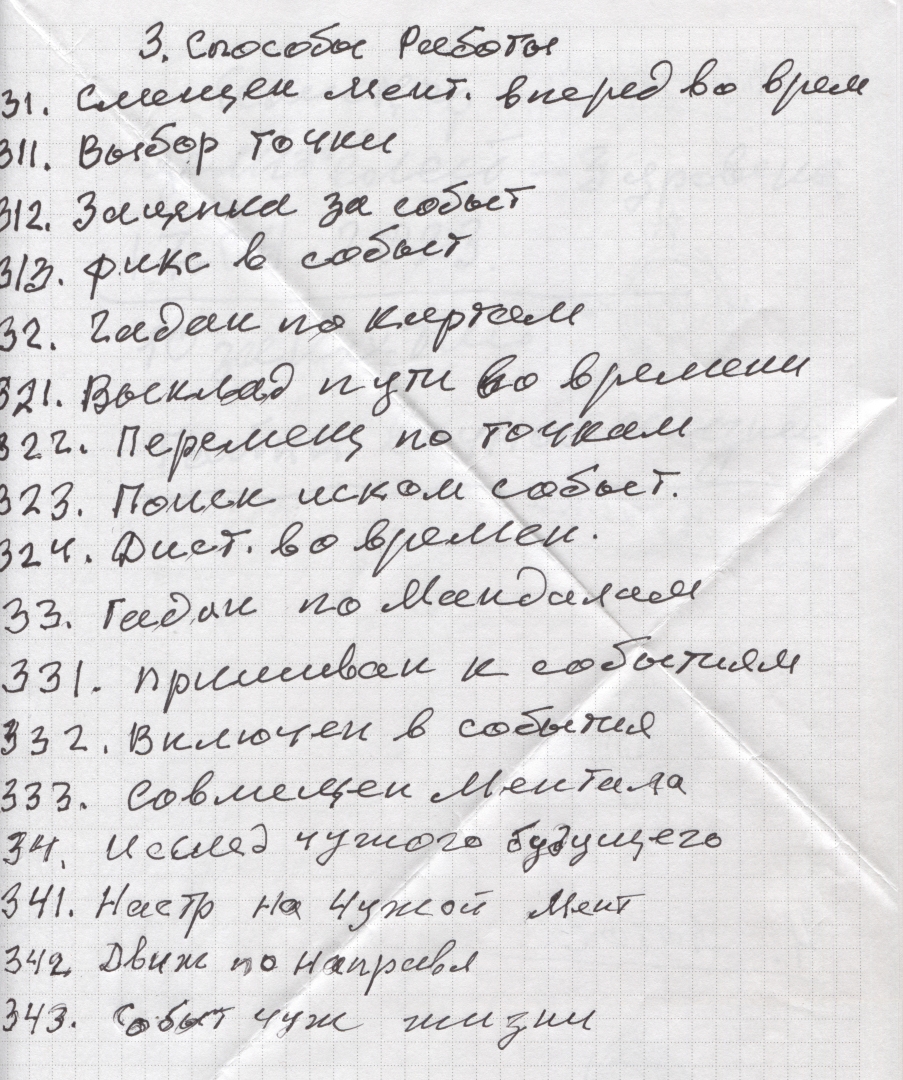 3. Способы Работы
31. Смещен мент. вперед во врем
311. Выбор точки
312. Зацепка за событ
313. фикс в событ
32. Гадан по картам
321. Выклад пути во времени
322. Перемещ по точкам
323. Поиск иском событ.
324. Дист. во времен.
33. Гадан по Мандалам
331. пришиван к событиям
332. Включен в события
333. Совмещен Ментала
34. Исслед чужого будущего
341. Настр на чужой Мент
342. Движ по направл
343. Событ чуж жизни